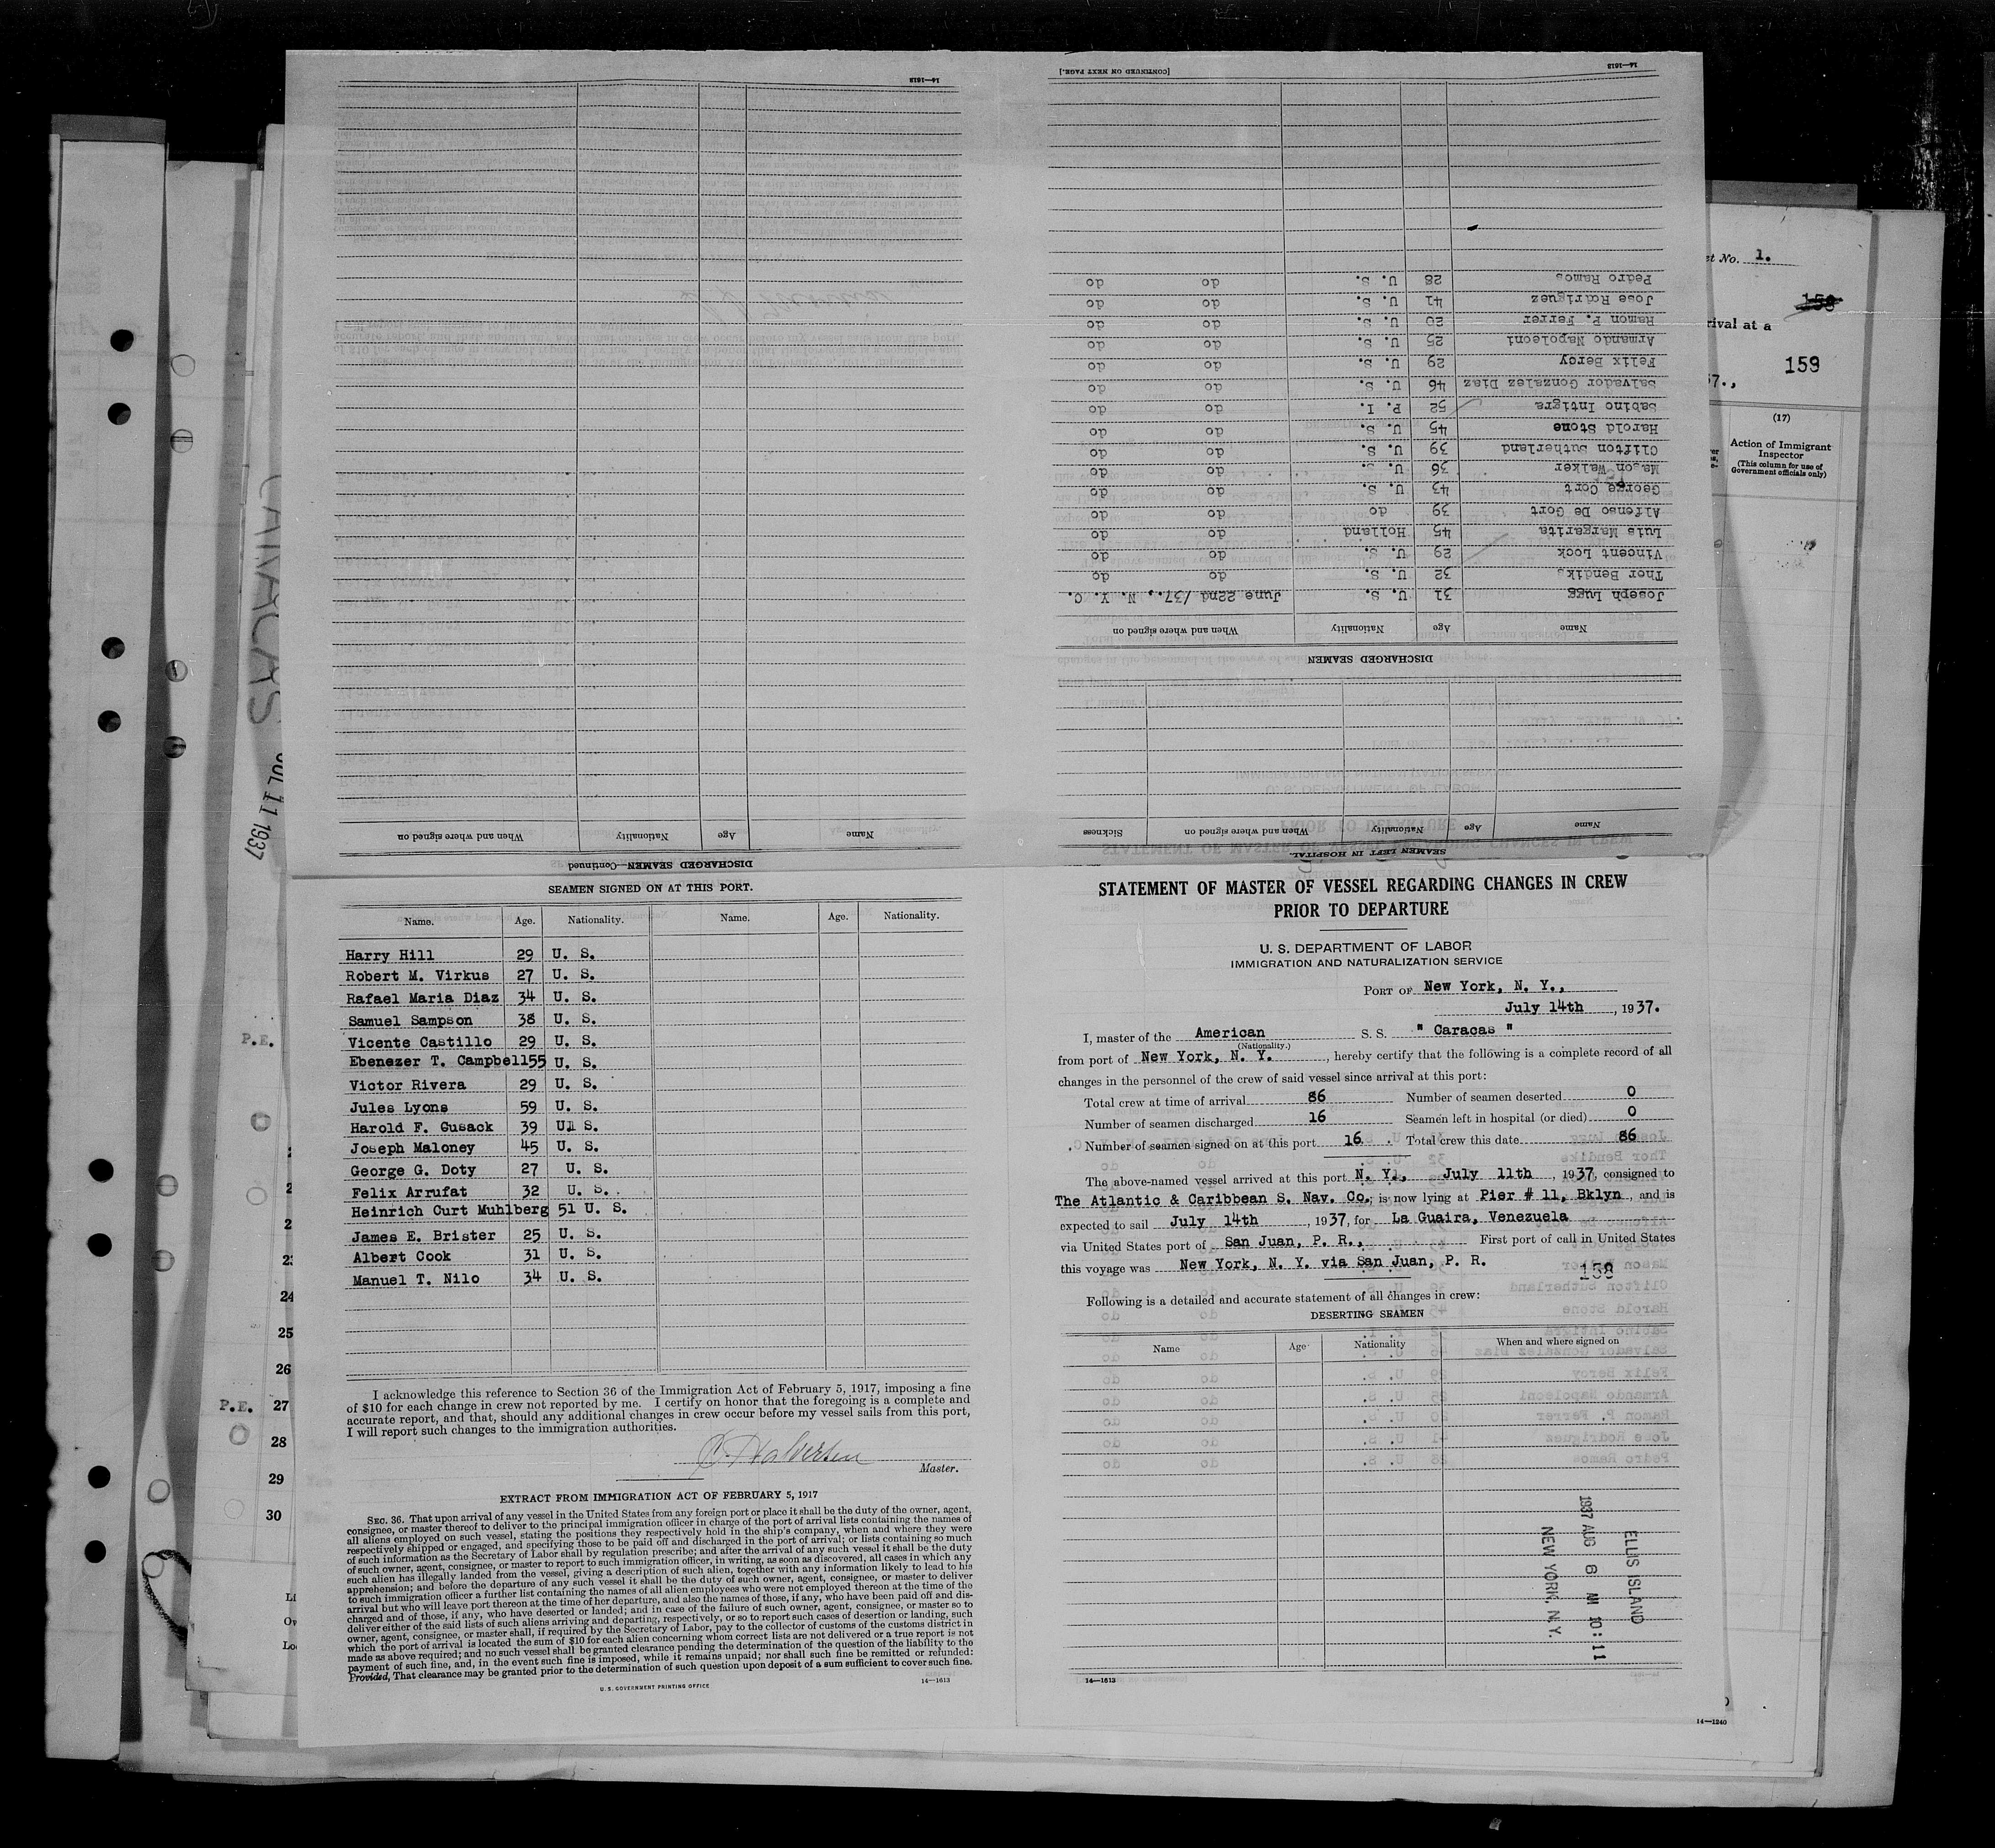 STATEMENT OF MASTER OF VESSEL REGARDING CHANGES IN CREW
PRIOR TO DEPARTURE
U. S. DEPARTMENT OF LABOR
IMMIGRATION AND NATURALIZATION SERVICE
PORT OF New York, N. Y.,
July 14th, 1937.
I, master of the American S. S. " Caracas "
(Nationality.)
from port of New York, N. Y., hereby certify that the following is a complete record of all
changes in the personnel of the crew of said vessel since arrival at this port:
Total crew at time of arrival 86 Number of seamen deserted 0
Number of seamen discharged 16 Seamen left in hospital (or died) 0
Number of seamen signed on at this port 16 Total crew this date 86
The above-named vessel arrived at this port N. Y., July 11th, 1937, consigned to
The Atlantic & Caribbean S. Nav. Co.; is now lying at Pier # 11, Bklyn, and is
expected to sail July 14th, 1937, for La Guaira, Venezuela
via United States port of San Juan, P. R., First port of call in United States
this voyage was New York, N. Y. via San Juan, P. R.
158
Following is a detailed and accurate statement of all changes in crew:
DESERTING SEAMEN
Name Age Nationality When and where signed on
ELLIS ISLAND
1937 AUG 6 AM 10:11
NEW YORK, N. Y.
14—1613
SEAMEN LEFT IN HOSPITAL
Name Age Nationality When and where signed on Sickness
DISCHARGED SEAMEN
Name Age Nationality When and where signed on
Joseph Lugg 31 U. S. June 22nd /37., N. Y. C.
Thor Bendiks 32 U. S. do do
Vincent Lock 29 U. S. do do
Luis Margarita 45 Holland do do
Alfenso De Gort 39 do do do
George Cort 43 U. S. do do
Mason Walker 36 U. S. do do
Clifton Sutherland 39 U. S. do do
Harold Stone 45 U. S. do do
Sabino Intigra 52 P. I. do do
Salvador Gonzalez Diaz 46 U. S. do do
Felix Beroy 29 U. S. do do
Armando Napoleoni 25 U. S. do do
Ramon P. Ferrer 20 U. S. do do
Jose Rodriguez 41 U. S. do do
Pedro Ramos 28 U. S. do do
14—1613
[CONTINUED ON NEXT PAGE.]
DISCHARGED SEAMEN—Continued
Name Age Nationality When and where signed on
14—1613
SEAMEN SIGNED ON AT THIS PORT.
Name. Age. Nationality. Name. Age. Nationality.
Harry Hill 29 U. S.
Robert M. Virkus 27 U. S.
Rafael Maria Diaz 34 U. S.
Samuel Sampson 38 U. S.
Vicente Castillo 29 U. S.
Ebenezer T. Campbell55 U. S.
Victor Rivera 29 U. S.
Jules Lyons 59 U. S.
Harold F. Gusack 39 U. S.
Joseph Maloney 45 U. S.
George G. Doty 27 U. S.
Felix Arrufat 32 U. S.
Heinrich Curt Muhlberg 51 U. S.
James E. Brister 25 U. S.
Albert Cook 31 U. S.
Manuel T. Nilo 34 U. S.
I acknowledge this reference to Section 36 of the Immigration Act of February 5, 1917, imposing a fine
of $10 for each change in crew not reported by me. I certify on honor that the foregoing is a complete and
accurate report, and that, should any additional changes in crew occur before my vessel sails from this port,
I will report such changes to the immigration authorities.
Master.
EXTRACT FROM IMMIGRATION ACT OF FEBRUARY 5, 1917
SEC. 36. That upon arrival of any vessel in the United States from any foreign port or place it shall be the duty of the owner, agent,
consignee, or master thereof to deliver to the principal immigration officer in charge of the port of arrival lists containing the names of
all aliens employed on such vessel, stating the positions they respectively hold in the ship's company, when and where they were
respectively shipped or engaged, and specifying those to be paid off and discharged in the port of arrival; or lists containing so much
of such information as the Secretary of Labor shall by regulation prescribe; and after the arrival of any such vessel it shall be the duty
of such owner, agent, consignee, or master to report to such immigration officer, in writing, as soon as discovered, all cases in which any
such alien has illegally landed from the vessel, giving a description of such alien, together with any information likely to lead to his
apprehension; and before the departure of any such vessel it shall be the duty of such owner, agent, consignee, or master to deliver
to such immigration officer a further list containing the names of all alien employees who were not employed thereon at the time of the
arrival but who will leave port thereon at the time of her departure, and also the names of those, if any, who have been paid off and dis-
charged and of those, if any, who have deserted or landed; and in case of the failure of such owner, agent, consignee, or master so to
deliver either of the said lists of such aliens arriving and departing, respectively, or so to report such cases of desertion or landing, such
owner, agent, consignee, or master shall, if required by the Secretary of Labor, pay to the collector of customs of the customs district in
which the port of arrival is located the sum of $10 for each alien concerning whom correct lists are not delivered or a true report is not
made as above required; and no such vessel shall be granted clearance pending the determination of the question of the liability to the
payment of such fine, and, in the event such fine is imposed, while it remains unpaid; nor shall such fine be remitted or refunded:
Provided, That clearance may be granted prior to the determination of such question upon deposit of a sum sufficient to cover such fine.
U. S. GOVERNMENT PRINTING OFFICE
14—1613
CARACAS
JUL 11 1937
P.E.
24
25
26
P.E. 27
28
29
30
No. 1.
158
rival at a
159
(17)
Action of Immigrant
Inspector
(This column for use of
Government officials only)
14—1240